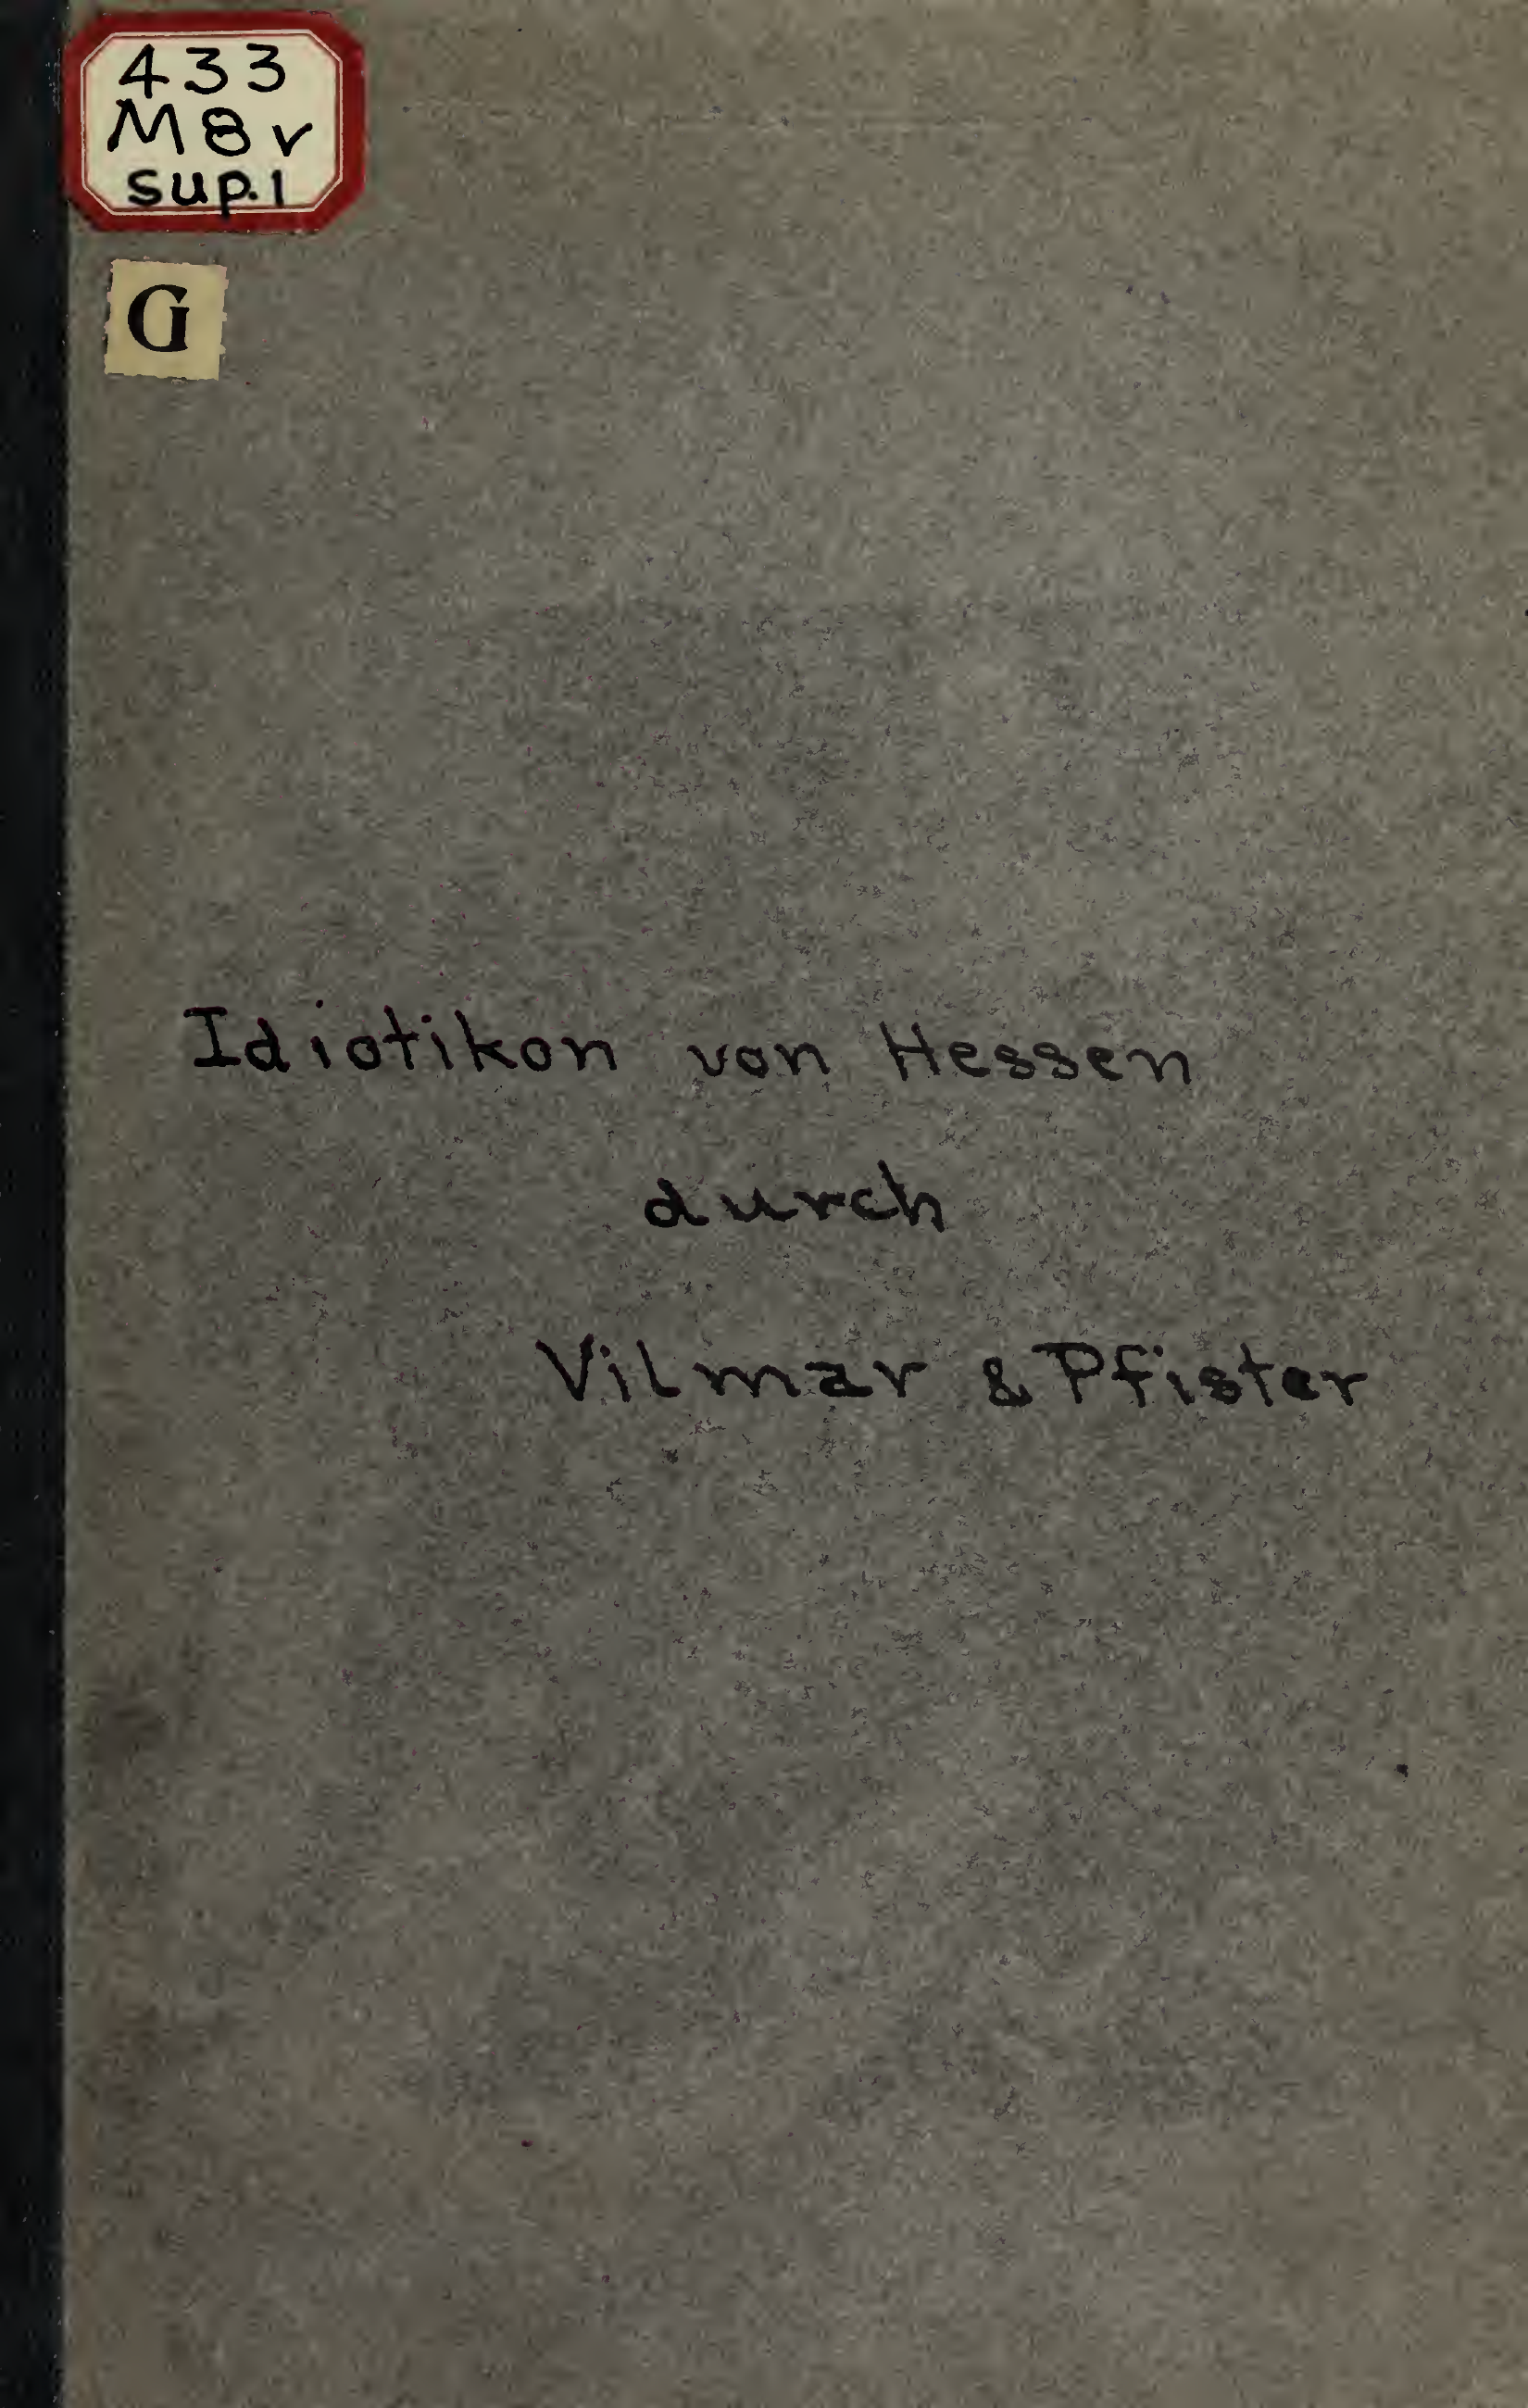 433
M8v
sup.1
G
Idiotikon von Hessen
durch
Vilmar & Pfister